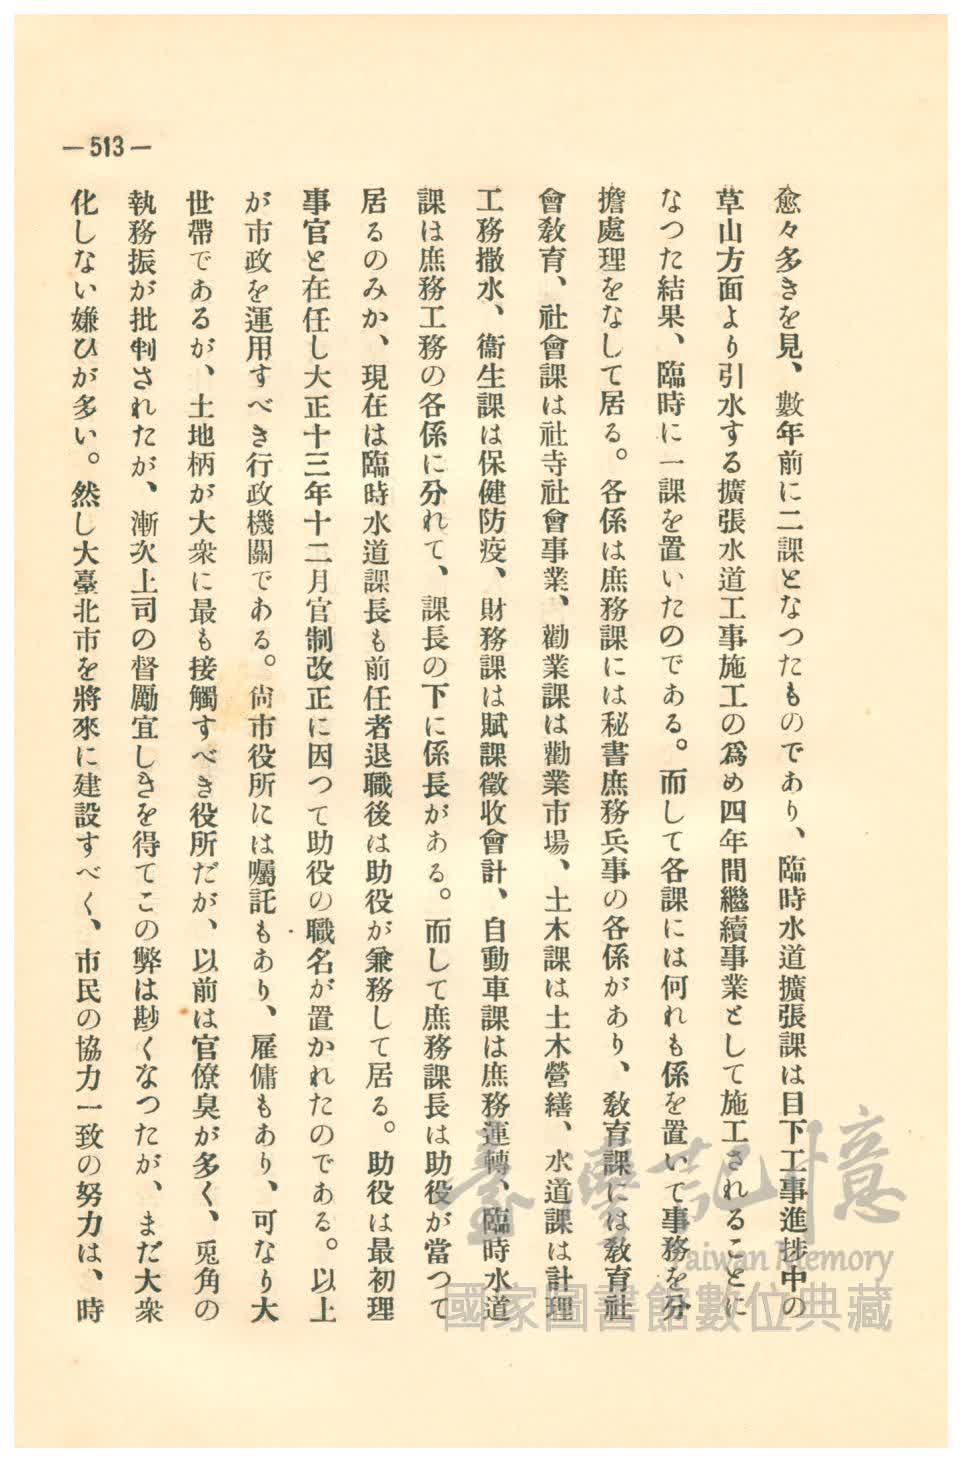 —513—
愈々多きを見、數年前に二課となつたものであり、臨時水道擴張課は目下工事進捗中の
草山方面より引水する擴張水道工事施工の爲め四年間繼續事業として施工されることに
なつた結果、臨時に一課を置いたのである。而して各課には何れも係を置いて事務を分
擔處理をなして居る。各係は庶務課には秘書庶務兵事の各係があり、敎育課には敎育社
會敎育、社會課は社寺社會事業、勸業課は勸業市場、土木課は土木營繕、水道課は計理
工務撒水、衞生課は保健防疫、財務課は賦課徵收會計、自動車課は庶務運轉、臨時水道
課は庶務工務の各係に分れて、課長の下に係長がある。而して庶務課長は助役が當つて
居るのみか、現在は臨時水道課長も前任者退職後は助役が兼務して居る。助役は最初理
事官と在任し大正十三年十二月官制改正に因つて助役の職名が置かれたのである。以上
が市政を運用すべき行政機關である。尙市役所には囑託もあり、雇傭もあり、可なり大
世帶であるが、土地柄が大衆に最も接觸すべき役所だが、以前は官僚臭が多く、兎角の
執務振が批判されたが、漸次上司の督勵宜しきを得てこの弊は尠くなつたが、まだ大衆
化しない嫌ひが多い。然し大臺北市を將來に建設すべく、市民の協力一致の努力は、時
臺灣記憶
Taiwan Memory
國家圖書館數位典藏